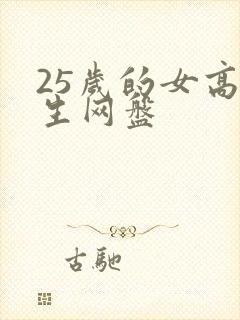 25歲的女高
生网盤
古馳